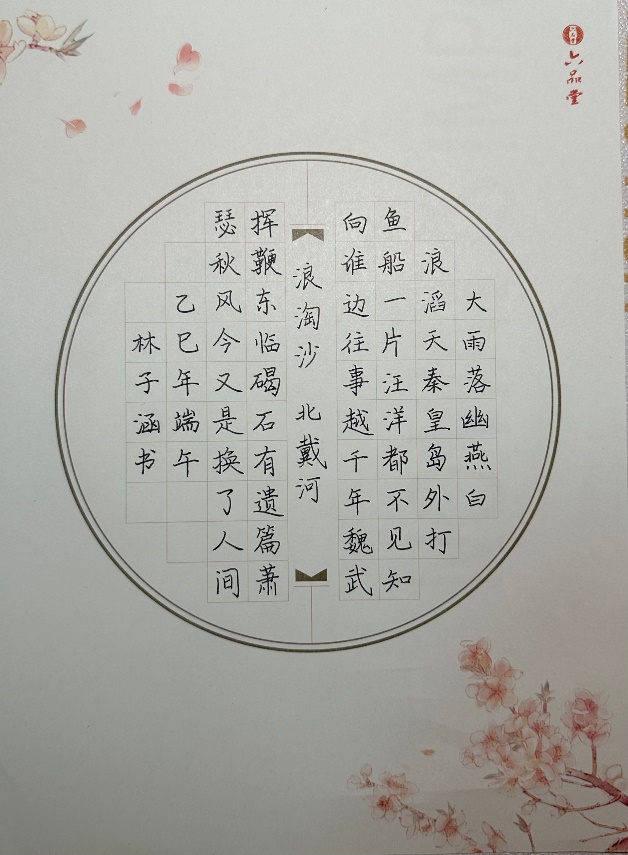 六品堂
大雨落幽燕白
浪滔天秦皇岛外打
鱼船一片汪洋都不见知
向谁边往事越千年魏武
浪淘沙 北戴河
挥鞭东临碣石有遗篇萧
瑟秋风今又是换了人间
乙巳年端午
林子涵书